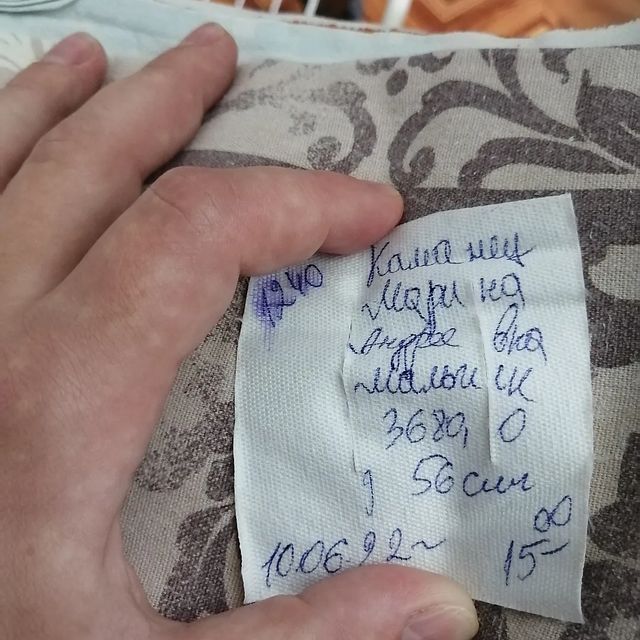 1240
Каманец
Марина
Андреевна
Мальчик
3689,0
д 56 см
10.06.22~ 15 00